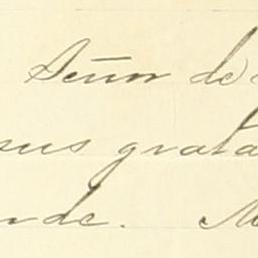 Señor de
sus grata
nde. M